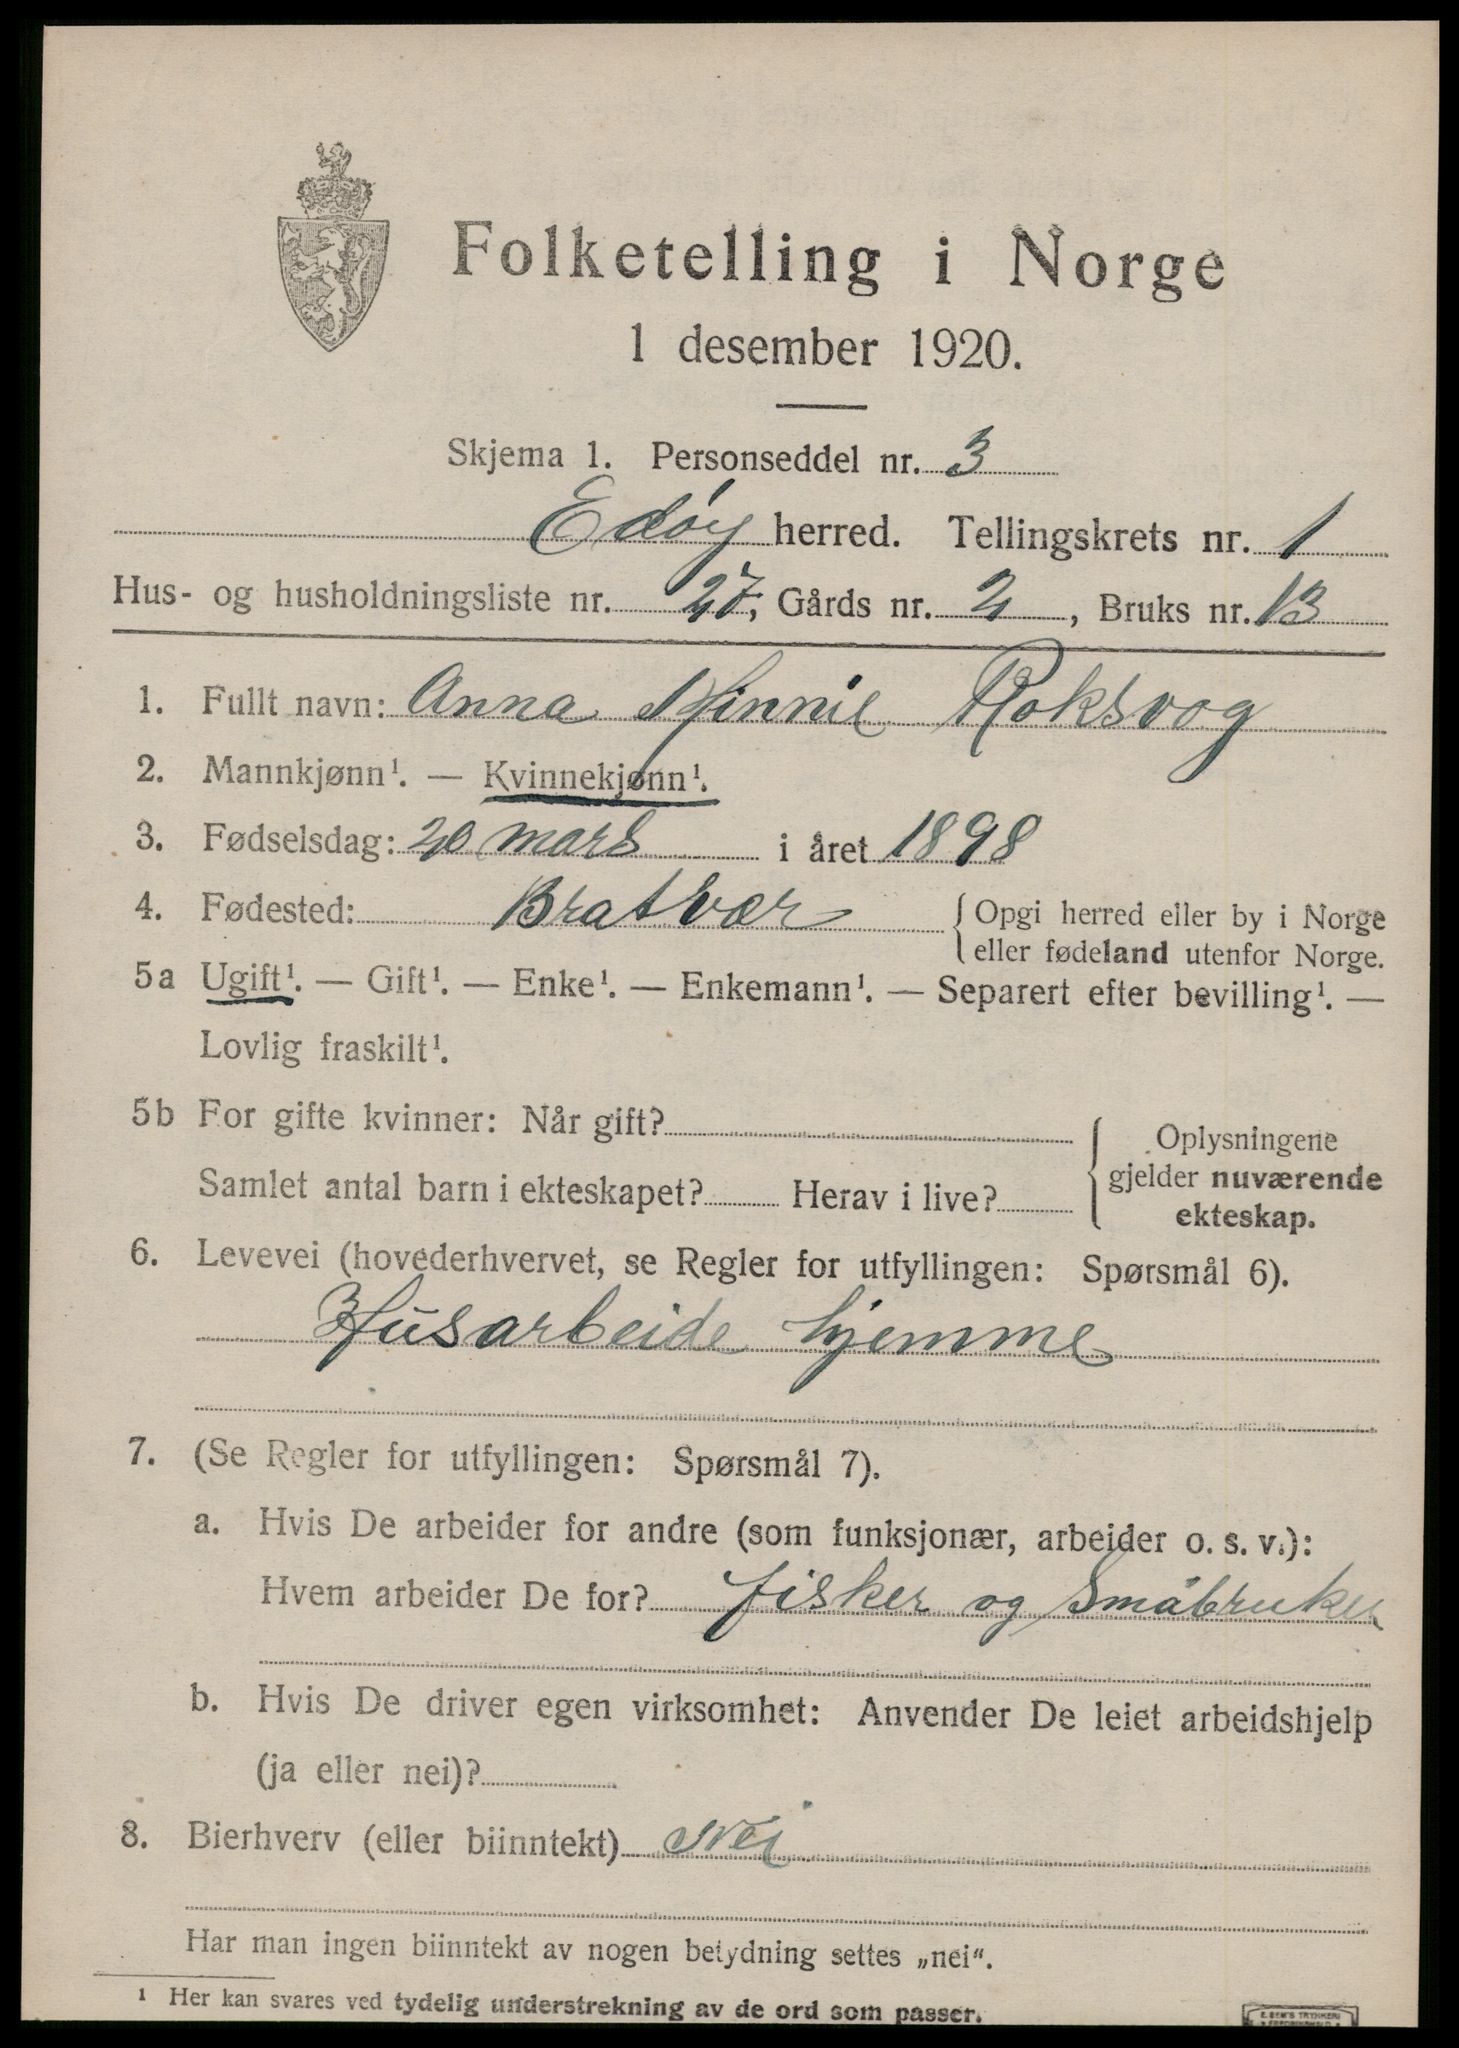 Folketelling i Norge
1 desember 1920.
Skjema 1. Personseddel nr. 3
Edøy herred. Tellingskrets nr. 1
Hus- og husholdningsliste nr. 27, Gårds nr. 2, Bruks nr. 13
1. Fullt navn: Anna Minnie Roksvog
2. Mannkjønn¹. — Kvinnekjønn¹.
3. Fødselsdag: 20 mars i året 1898
4. Fødested: Bratvær { Opgi herred eller by i Norge
eller fødeland utenfor Norge.
5a Ugift¹. — Gift¹. — Enke¹. — Enkemann¹. — Separert efter bevilling¹. —
Lovlig fraskilt¹.
5b For gifte kvinner: Når gift?
Samlet antal barn i ekteskapet? Herav i live?
Oplysningene
gjelder nuværende
ekteskap.
6. Levevei (hovederhvervet, se Regler for utfyllingen: Spørsmål 6).
Husarbeide hjemme
7. (Se Regler for utfyllingen: Spørsmål 7).
a. Hvis De arbeider for andre (som funksjonær, arbeider o. s. v.):
Hvem arbeider De for? fisker og Småbruker
b. Hvis De driver egen virksomhet: Anvender De leiet arbeidshjelp
(ja eller nei)?
8. Bierhverv (eller biinntekt) Nei
Har man ingen biinntekt av nogen betydning settes „nei“.
¹ Her kan svares ved tydelig understrekning av de ord som passer.
E. SEM'S TRYKKERI
FREDRIKSHALD